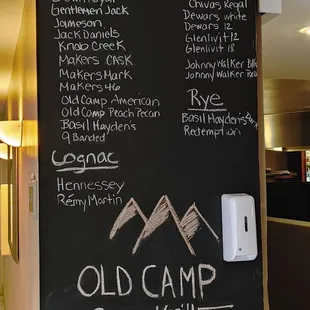 Gentlemen Jack
Jameson
Jack Daniels
Knob Creek
Makers CASK
Makers Mark
Makers 46
Old Camp American
Old Camp Peach Pecan
Basil Hayden's
9 Banded
Cognac
Hennessey
Rémy Martin
Chivas Regal
Dewars white
Dewars 12
Glenlivit 12
Glenlivit 18
Johnny Walker
Johnny Walker Red
Rye
Basil Hayden's
Redemption
OLD CAMP